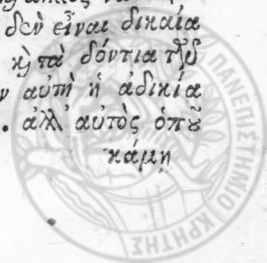 δὲν εἶναι δικαία
κỳ τὰ δόντια τȣ͂
αὐτὴ ἡ ἀδικία
. ἀλλ' αὐτὸς ὁπȣ͂
κάμῃ
ΠΑΝΕΠΙΣΤΗΜΙΟ ΚΡΗΤΗΣ